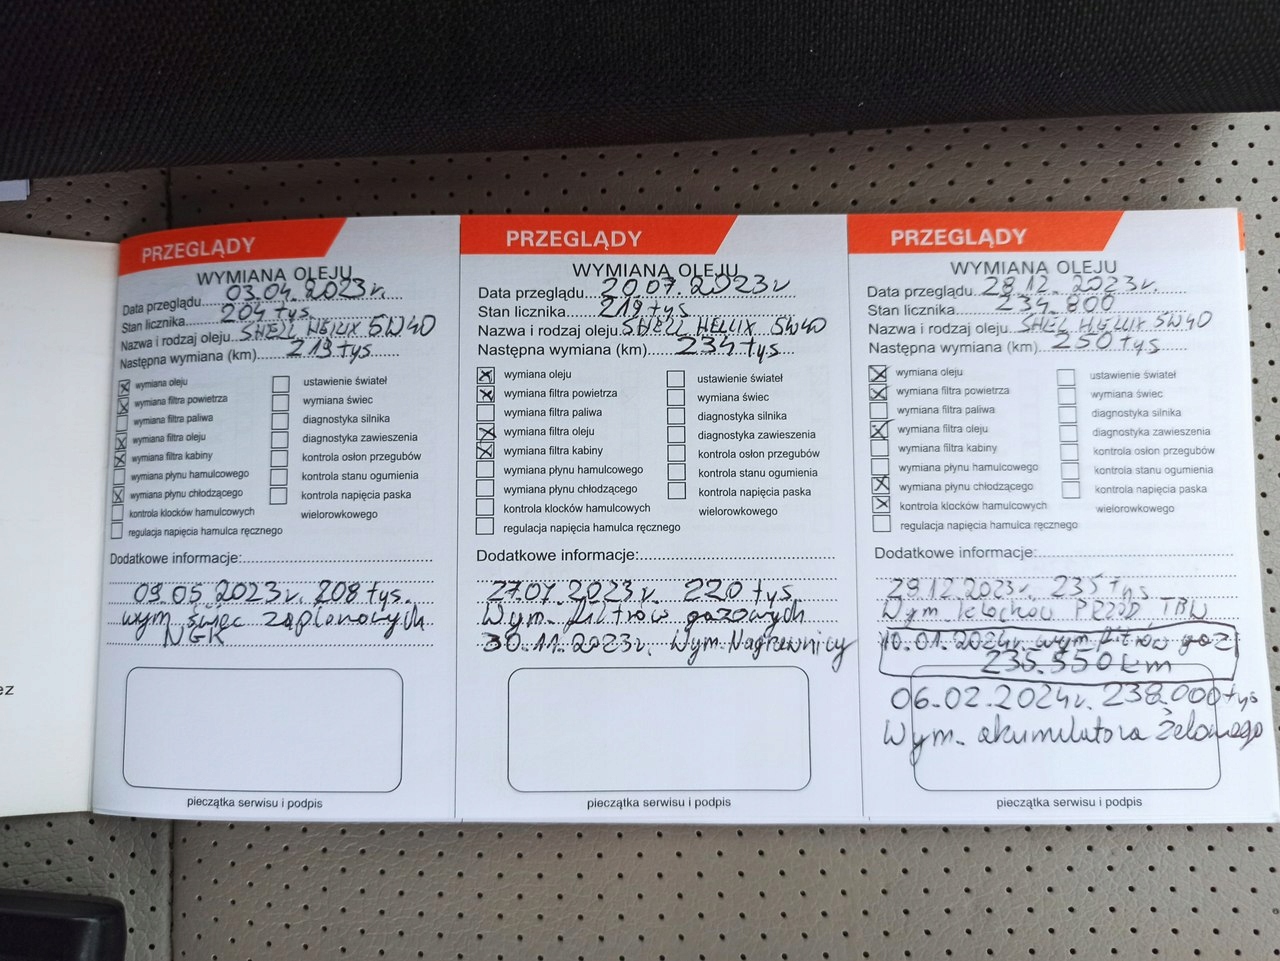 PRZEGLĄDY
WYMIANA OLEJU
Data przeglądu 03.04.2023r.
Stan licznika 204 tys.
Nazwa i rodzaj oleju SHELL HELIX 5W40
Następna wymiana (km) 219 tys
wymiana oleju
wymiana filtra powietrza
wymiana filtra paliwa
wymiana filtra oleju
wymiana filtra kabiny
wymiana płynu hamulcowego
wymiana płynu chłodzącego
kontrola klocków hamulcowych
regulacja napięcia hamulca ręcznego
ustawienie świateł
wymiana świec
diagnostyka silnika
diagnostyka zawieszenia
kontrola osłon przegubów
kontrola stanu ogumienia
kontrola napięcia paska
wielorowkowego
Dodatkowe informacje:
09.05.2023r. 208 tys.
wym. świec zapłonowych
NGK
pieczątka serwisu i podpis
PRZEGLĄDY
WYMIANA OLEJU
Data przeglądu 20.07.2023r
Stan licznika 219 tys
Nazwa i rodzaj oleju SHELL HELLIX 5W40
Następna wymiana (km) 234 tys
wymiana oleju
wymiana filtra powietrza
wymiana filtra paliwa
wymiana filtra oleju
wymiana filtra kabiny
wymiana płynu hamulcowego
wymiana płynu chłodzącego
kontrola klocków hamulcowych
regulacja napięcia hamulca ręcznego
ustawienie świateł
wymiana świec
diagnostyka silnika
diagnostyka zawieszenia
kontrola osłon przegubów
kontrola stanu ogumienia
kontrola napięcia paska
wielorowkowego
Dodatkowe informacje:
27.07.2023r. 220 tys.
Wym. filtrów gazowych
30.11.2023r. Wym. Nagrzewnicy
pieczątka serwisu i podpis
PRZEGLĄDY
WYMIANA OLEJU
Data przeglądu 28.12.2023r.
Stan licznika 234.800
Nazwa i rodzaj oleju SHEL HELLIX 5W40
Następna wymiana (km) 250 tys
wymiana oleju
wymiana filtra powietrza
wymiana filtra paliwa
wymiana filtra oleju
wymiana filtra kabiny
wymiana płynu hamulcowego
wymiana płynu chłodzącego
kontrola klocków hamulcowych
regulacja napięcia hamulca ręcznego
ustawienie świateł
wymiana świec
diagnostyka silnika
diagnostyka zawieszenia
kontrola osłon przegubów
kontrola stanu ogumienia
kontrola napięcia paska
wielorowkowego
Dodatkowe informacje:
29.12.2023r. 235 tys.
Wym. klocków PRZÓD
10.01.2024r. wym filtrów gaz
235.550 km
06.02.2024r. 238.000 tys
Wym. akumulatora Żelowego
pieczątka serwisu i podpis
ez